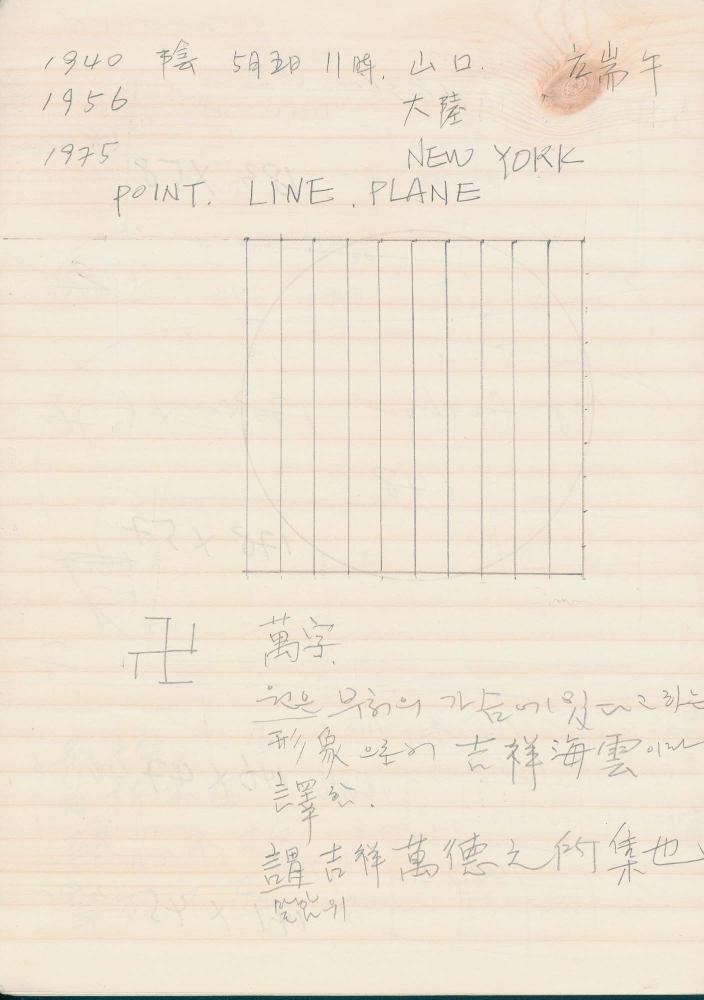 1940 陰 5月5日 11時. 山口. 立端午
1956 大陸
1975 NEW YORK
POINT. LINE. PLANE
卍 萬字.
원은 부처의 가슴에 있다고 하는
形象으로서 吉祥海雲이라
譯함.
謂吉祥萬德之所集也
말씀 위